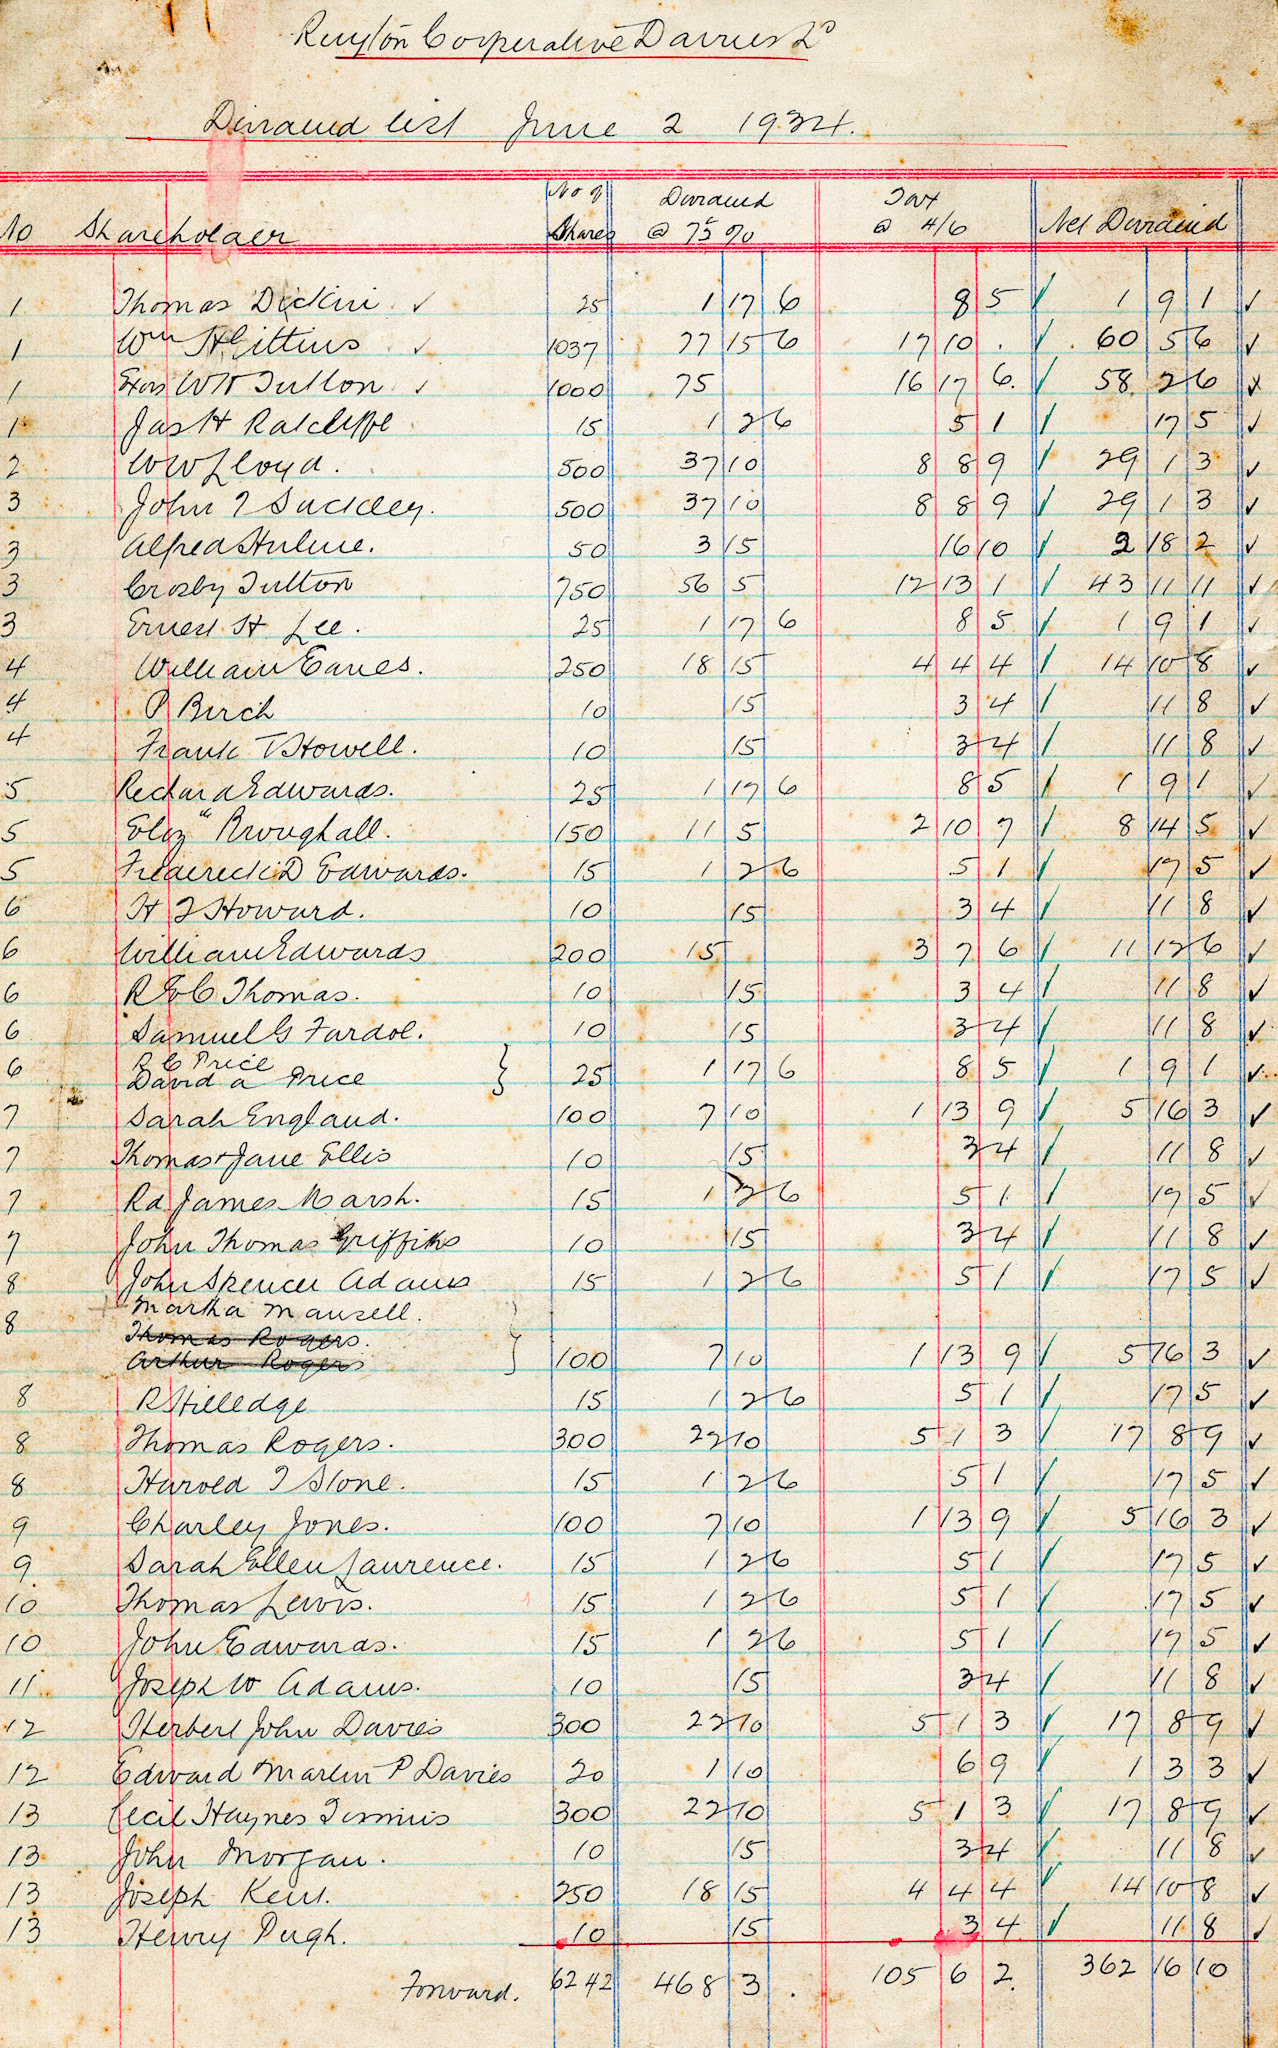 Ruyton Cooperative Dairies Ld
Dividend list June 2 1934.
No Shareholder No of Shares Dividend @ 7½% Tax @ 4/6 Net Dividend
1 Thomas Dickin ✓ 25 1 17 6 8 5 ✓ 1 9 1 ✓
1 Wm H Gittins ✓ 1037 77 15 6 17 10 . ✓ 60 5 6 ✓
1 Exors W H Tutton ✓ 1000 75 16 17 6. ✓ 58 2 6 ✓
1 Jas H Ratcliffe 15 1 2 6 5 1 ✓ 17 5 ✓
2 W W Lloyd. 500 37 10 8 8 9 ✓ 29 1 3 ✓
3 John T Suckley. 500 37 10 8 8 9 ✓ 29 1 3 ✓
3 Alfred Hulme. 50 3 15 16 10 ✓ 2 18 2 ✓
3 Crosby Tutton 750 56 5 12 13 1 ✓ 43 11 11 ✓
3 Ernest H Lee. 25 1 17 6 8 5 ✓ 1 9 1 ✓
4 William Eanes. 250 18 15 4 4 4 ✓ 14 10 8 ✓
4 P Birch 10 15 3 4 ✓ 11 8 ✓
4 Frank T Howell. 10 15 3 4 ✓ 11 8 ✓
5 Richard Edwards. 25 1 17 6 8 5 ✓ 1 9 1 ✓
5 Eliz" Broughall. 150 11 5 2 10 7 ✓ 8 14 5 ✓
5 Frederick D Edwards. 15 1 2 6 5 1 ✓ 17 5 ✓
6 H T Howard. 10 15 3 4 ✓ 11 8 ✓
6 William Edwards 200 15 3 7 6 ✓ 11 12 6 ✓
6 R & C Thomas. 10 15 3 4 ✓ 11 8 ✓
6 Samuel G Fardoe. 10 15 3 4 ✓ 11 8 ✓
6 R C Price
David A Price } 25 1 17 6 8 5 ✓ 1 9 1 ✓
7 Sarah England. 100 7 10 1 13 9 ✓ 5 16 3 ✓
7 Thomas & Jane Ellis 10 15 3 4 ✓ 11 8 ✓
7 Rd James Marsh. 15 1 2 6 5 1 ✓ 17 5 ✓
7 John Thomas Griffiths 10 15 3 4 ✓ 11 8 ✓
8 John Spencer Adams 15 1 2 6 5 1 ✓ 17 5 ✓
Martha Mansell.
8 Thomas Rogers.
Arthur Rogers } 100 7 10 1 13 9 ✓ 5 16 3 ✓
8 R Hilledge 15 1 2 6 5 1 ✓ 17 5 ✓
8 Thomas Rogers. 300 22 10 5 1 3 ✓ 17 8 9 ✓
8 Harold T Stone. 15 1 2 6 5 1 ✓ 17 5 ✓
9 Charley Jones. 100 7 10 1 13 9 ✓ 5 16 3 ✓
9 Sarah Ellen Laurence. 15 1 2 6 5 1 ✓ 17 5 ✓
10 Thomas Lewis. 15 1 2 6 5 1 ✓ 17 5 ✓
10 John Edwards. 15 1 2 6 5 1 ✓ 17 5 ✓
11 Joseph W Adams. 10 15 3 4 ✓ 11 8 ✓
12 Herbert John Davies 300 22 10 5 1 3 ✓ 17 8 9 ✓
12 Edward Martin P Davies 20 1 10 6 9 ✓ 1 3 3 ✓
13 Cecil Haynes Timmis 300 22 10 5 1 3 ✓ 17 8 9 ✓
13 John Morgan. 10 15 3 4 ✓ 11 8 ✓
13 Joseph Kent. 250 18 15 4 4 4 ✓ 14 10 8 ✓
13 Henry Pugh. 10 15 3 4 ✓ 11 8 ✓
Forward. 6242 468 3 . 105 6 2. 362 16 10